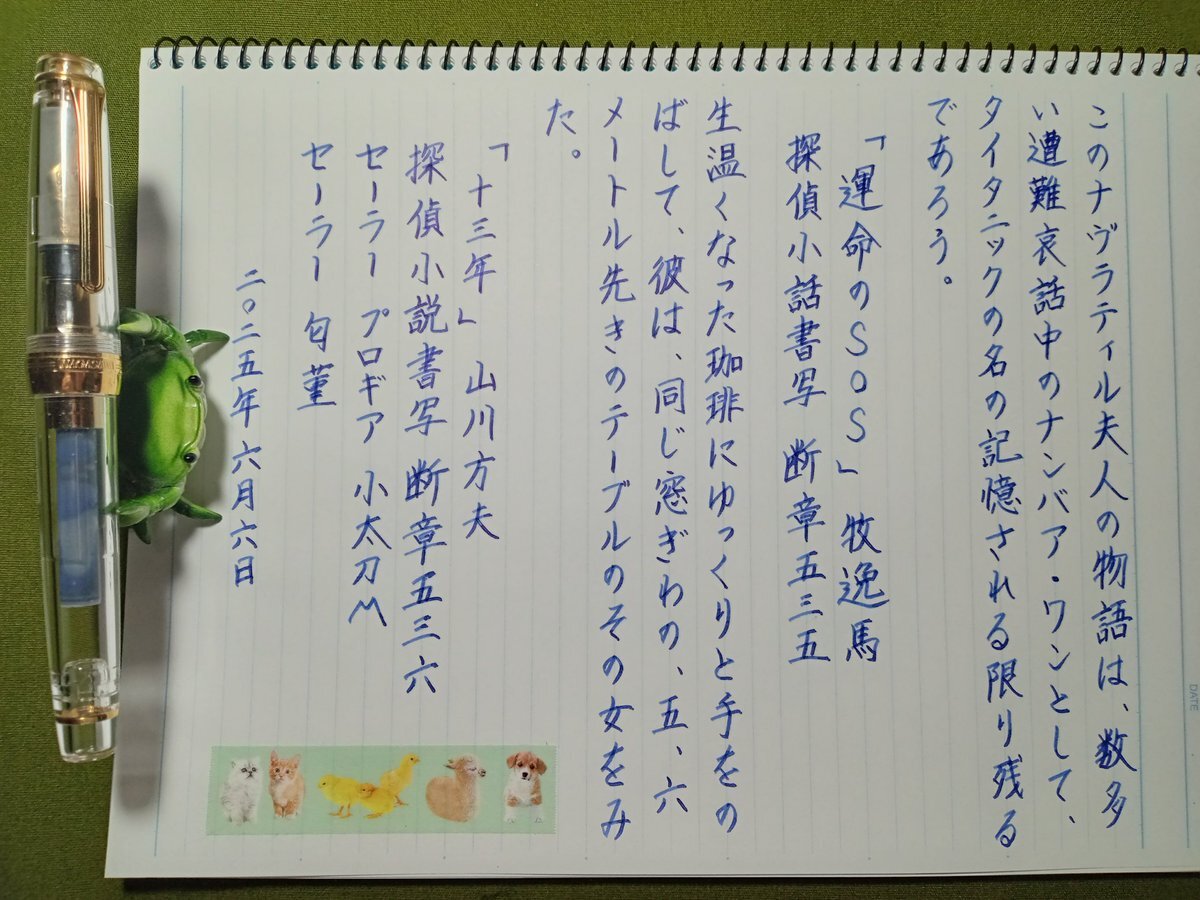 このナヴラティル夫人の物語は、数多
い遭難哀話中のナンバア・ワンとして、
タイタニックの名の記憶される限り残る
であろう。
「運命のSOS」 牧逸馬
探偵小話書写 断章五三五
生温くなった珈琲にゆっくりと手をの
ばして、彼は、同じ窓ぎわの、五、六
メートル先きのテーブルのその女をみ
た。
「十三年」 山川方夫
探偵小説書写 断章五三六
セーラー プロギア 小太刀M
セーラー 匂菫
二〇二五年六月六日
DATE